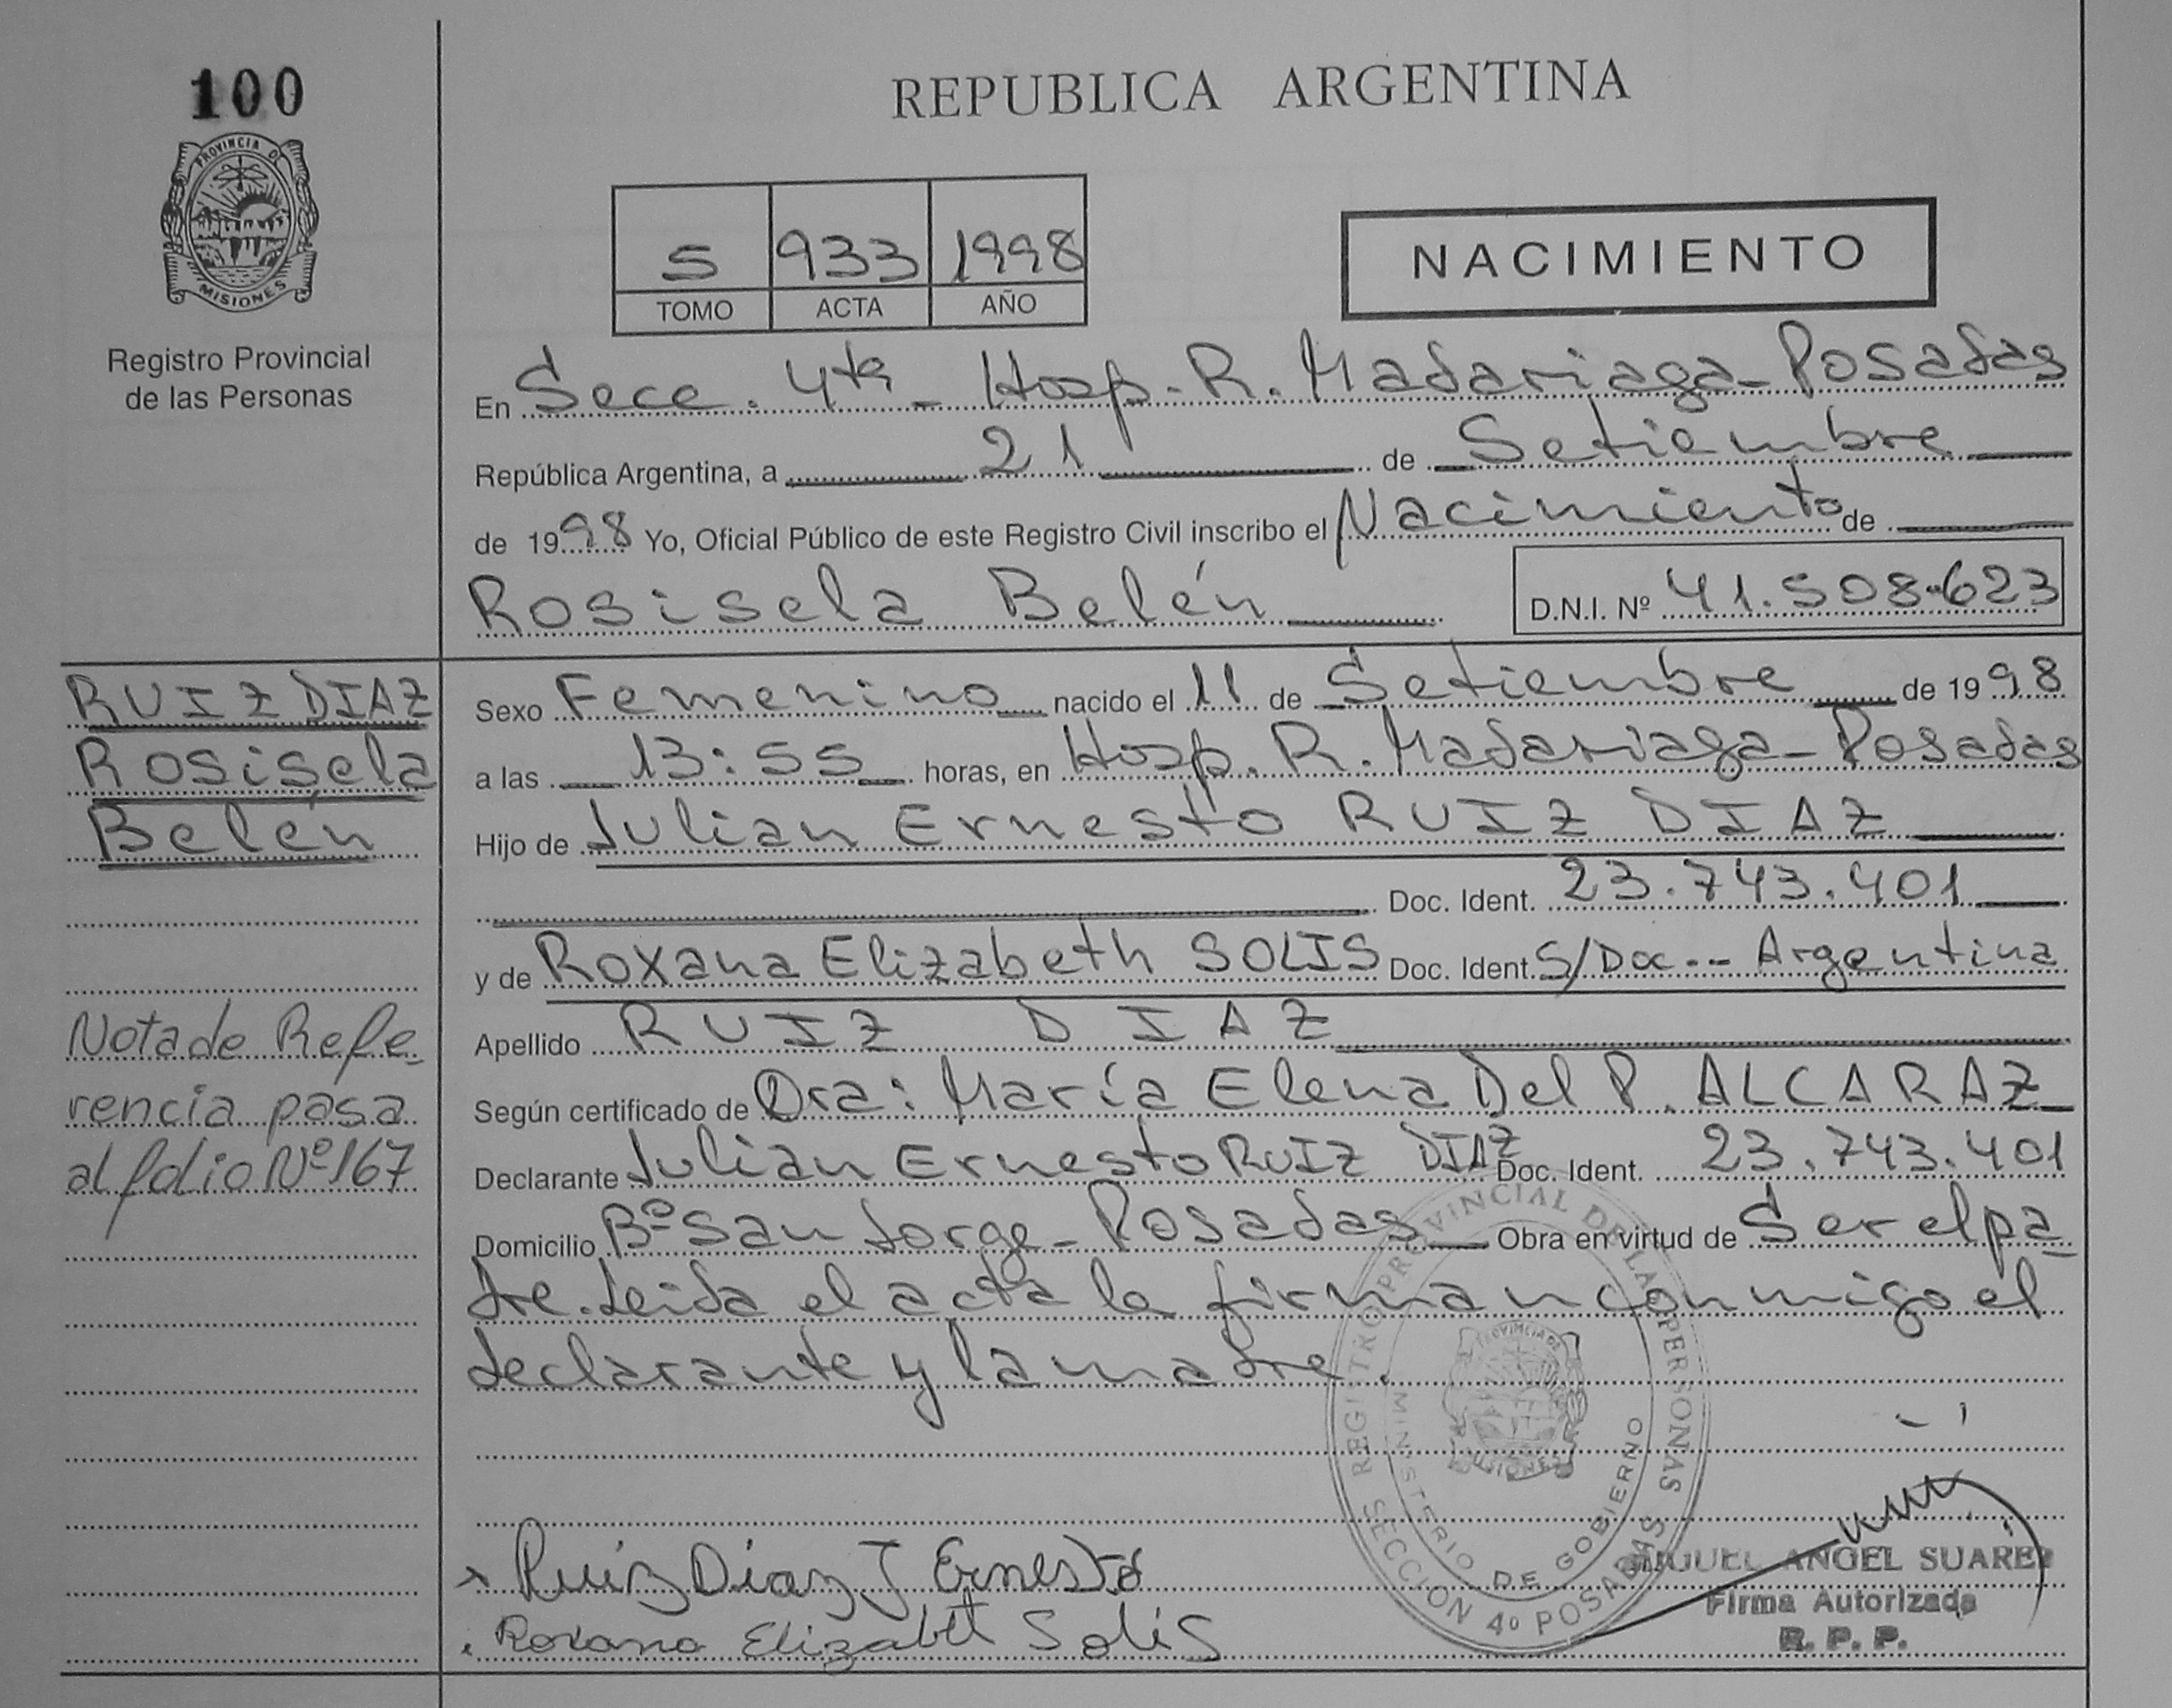 100
PROVINCIA DE
MISIONES
Registro Provincial
de las Personas
REPUBLICA ARGENTINA
5 933 1998
TOMO ACTA AÑO
NACIMIENTO
En Secc. 4ta - Hosp. R. Madariaga - Posadas
República Argentina, a 21 de Setiembre
de 1998 Yo, Oficial Público de este Registro Civil inscribo el Nacimiento de
Rosisela Belén D.N.I. Nº 41.508.623
RUIZ DIAZ
Rosisela
Belén
Nota de Refe-
rencia pasa
al folio Nº 167
Sexo Femenino nacido el 11 de Setiembre de 1998
a las 13:55 horas, en Hosp. R. Madariaga - Posadas
Hijo de Julian Ernesto RUIZ DIAZ
Doc. Ident. 23.743.401
y de Roxana Elizabeth SOLIS Doc. Ident. S/Doc -- Argentina
Apellido RUIZ DIAZ
Según certificado de Dra: María Elena Del P. ALCARAZ
Declarante Julian Ernesto RUIZ DIAZ Doc. Ident. 23.743.401
Domicilio Bº San Jorge - Posadas Obra en virtud de Ser el pa-
dre. Leida el acta la firman conmigo el
declarante y la madre.
REGISTRO PROVINCIAL DE LAS PERSONAS
MINISTERIO DE GOBIERNO
PROVINCIA DE
MISIONES
SECCION 4º POSADAS
x Ruiz Diaz J Ernesto
Roxana Elizabet Solis
MIGUEL ANGEL SUAREZ
Firma Autorizada
R. P. P.